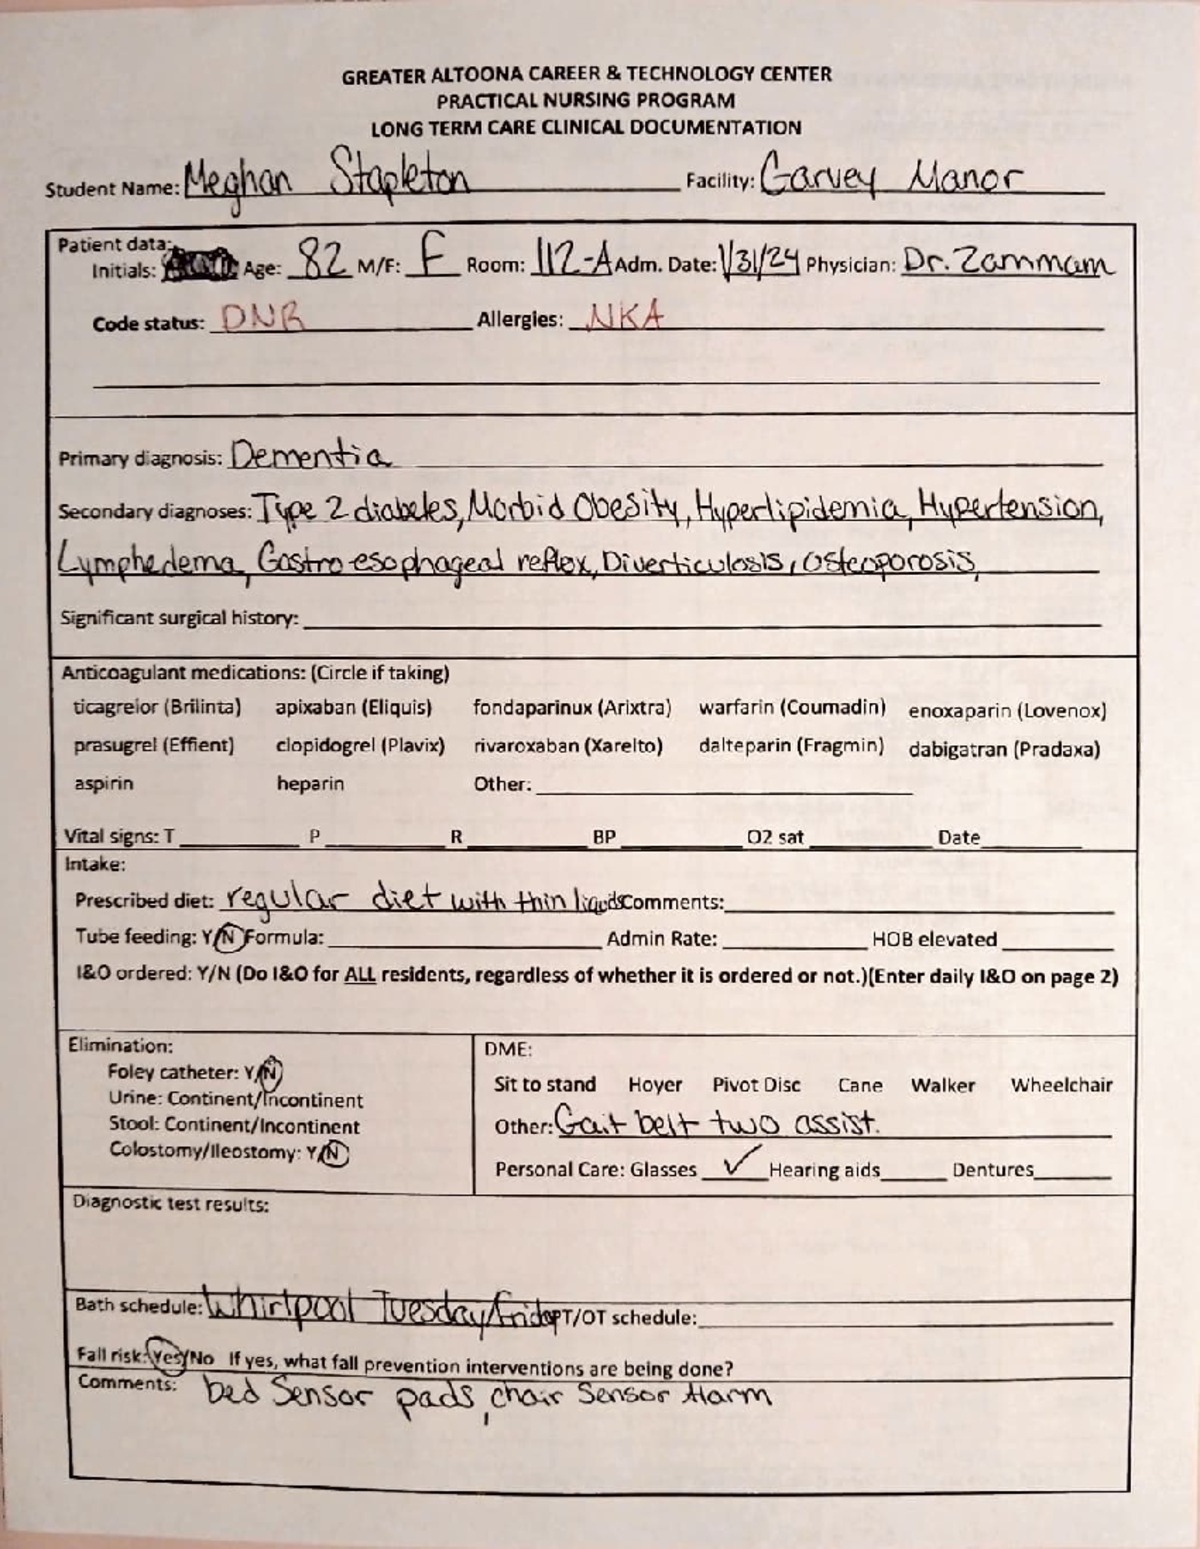 GREATER ALTOONA CAREER & TECHNOLOGY CENTER
PRACTICAL NURSING PROGRAM
LONG TERM CARE CLINICAL DOCUMENTATION
Student Name: Meghan Stapleton Facility: Garvey Manor
Patient data:
Initials: Age: 82 M/F: F Room: 112-A Adm. Date: 1/31/24 Physician: Dr. Zammam
Code status: DNR Allergies: NKA
Primary diagnosis: Dementia
Secondary diagnoses: Type 2 diabetes, Morbid Obesity, Hyperlipidemia, Hypertension,
Lymphedema, Gastro esophageal reflex, Diverticulosis, Osteoporosis,
Significant surgical history:
Anticoagulant medications: (Circle if taking)
ticagrelor (Brilinta) apixaban (Eliquis) fondaparinux (Arixtra) warfarin (Coumadin) enoxaparin (Lovenox)
prasugrel (Effient) clopidogrel (Plavix) rivaroxaban (Xarelto) dalteparin (Fragmin) dabigatran (Pradaxa)
aspirin heparin Other:
Vital signs: T P R BP O2 sat Date
Intake:
Prescribed diet: regular diet with thin liquids Comments:
Tube feeding: Y/N Formula: Admin Rate: HOB elevated
I&O ordered: Y/N (Do I&O for ALL residents, regardless of whether it is ordered or not.)(Enter daily I&O on page 2)
Elimination:
Foley catheter: Y/N
Urine: Continent/Incontinent
Stool: Continent/Incontinent
Colostomy/Ileostomy: Y/N
DME:
Sit to stand Hoyer Pivot Disc Cane Walker Wheelchair
Other: Gait belt two assist.
Personal Care: Glasses ✓ Hearing aids Dentures
Diagnostic test results:
Bath schedule: Whirlpool Tuesday/Friday PT/OT schedule:
Fall risk: Yes/No If yes, what fall prevention interventions are being done?
Comments: bed Sensor pads, chair Sensor Alarm